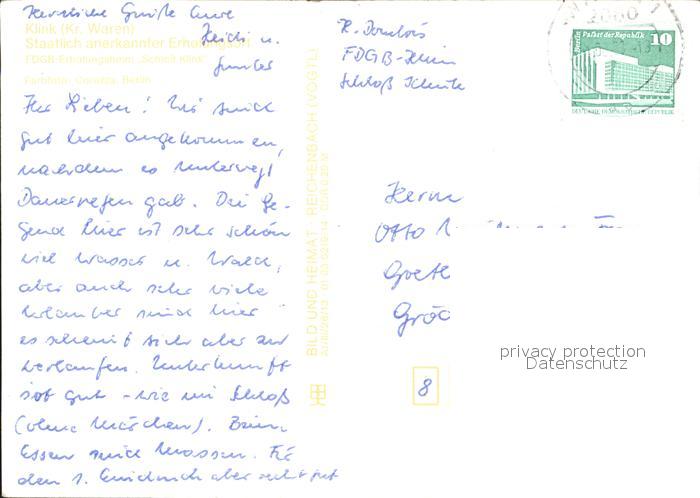 Herzliche Grüße Eure
Heidi u.
Gunter
Klink (Kr. Waren)
Staatlich anerkannter Erholungsort
FDGB-Erholungsheim „Schloß Klink“
Ihr Lieben! Wir sind
gut hier angekommen,
nachdem es unterwegs
Dauerregen gab. Die Ge-
gend hier ist sehr schön
viel Wasser u. Wald,
aber auch sehr viele
Urlauber sind hier
es scheint sich aber zu
verlaufen. Unterkunft
ist gut - wie im Schloß
(ohne Märchen). Beim
Essen sind Massen. Für
den 1. Eindruck aber recht gut
BILD UND HEIMAT REICHENBACH (VOGTL)
FDGB-Heim
Schloß Klink
2060
Berlin Palast der Republik 10
DEUTSCHE DEMOKRATISCHE REPUBLIK
Herrn
Otto
8
privacy protection
Datenschutz